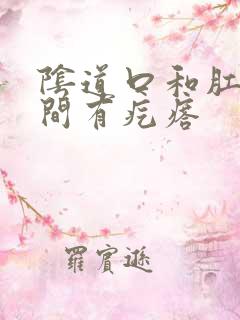 陰道口和肛
間有疙瘩
羅賓遜